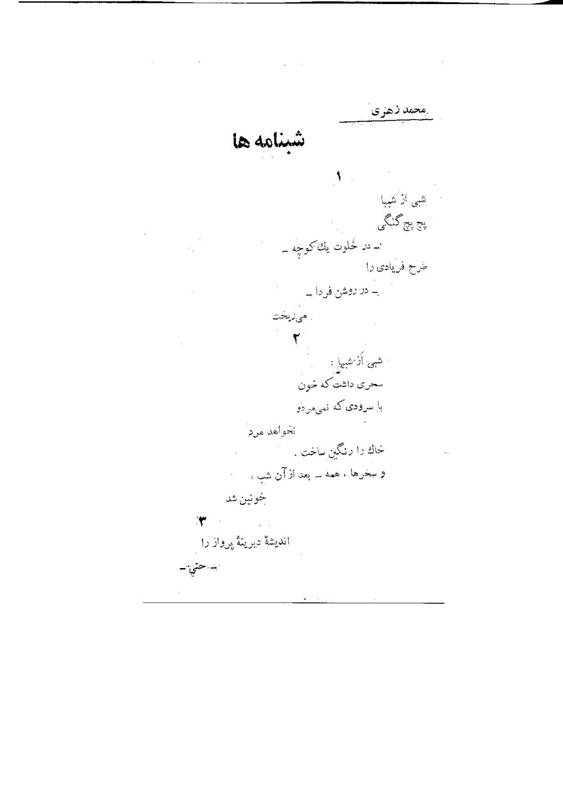 محمد زهری
شبنامه ها
۱
شبی از شبها
پچ پچ گنگی
ـ در خلوت یك کوچه ـ
طرح فریادی را
ـ در روشن فردا ـ
می‌ریخت
۲
شبی از شبها :
سحری داشت که خون
با سرودی که نمی‌مرد و
نخواهد مرد
خاك را رنگین ساخت .
و سحرها ، همه ـ بعد از آن شب ،
خونین شد
۳
اندیشهٔ دیرینهٔ پرواز را
ـ حتی ـ